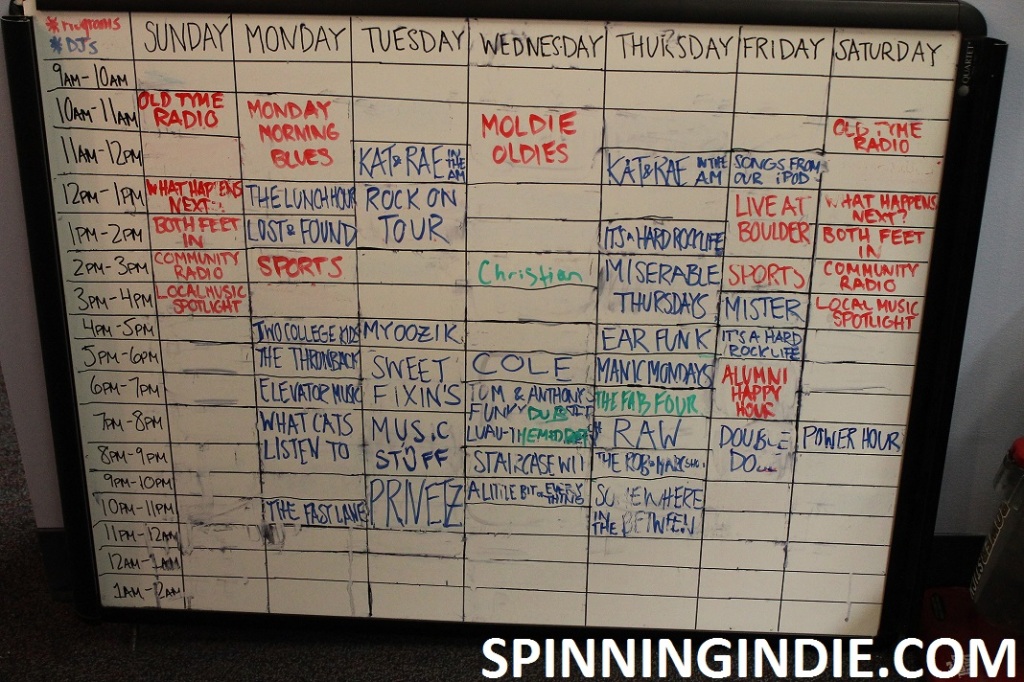 *Programs
*DJs
SUNDAY MONDAY TUESDAY WEDNESDAY THURSDAY FRIDAY SATURDAY
9AM-10AM
10AM-11AM OLD TYME RADIO
MONDAY MORNING BLUES
MOLDIE OLDIES
OLD TYME RADIO
11AM-12PM KAT & RAE IN THE AM
KAT & RAE IN THE AM
SONGS FROM OUR iPOD
12PM-1PM WHAT HAPPENS NEXT
THE LUNCH HOUR
ROCK ON TOUR
LIVE AT BOULDER
WHAT HAPPENS NEXT?
1PM-2PM BOTH FEET IN
LOST & FOUND
IT'S A HARD ROCK LIFE
BOTH FEET IN
2PM-3PM COMMUNITY RADIO
SPORTS
Christian
MISERABLE THURSDAYS
SPORTS
COMMUNITY RADIO
3PM-4PM LOCAL MUSIC SPOTLIGHT
MISTER
LOCAL MUSIC SPOTLIGHT
4PM-5PM TWO COLLEGE KIDS
MYOOZIK
EAR FUNK
IT'S A HARD ROCK LIFE
5PM-6PM THE THROWBACK
SWEET FIXIN'S
COLE
MANIC MONDAYS
ALUMNI HAPPY HOUR
6PM-7PM ELEVATOR MUSIC
TOM & ANTHONY'S FUNKY
DUB
THE FAB FOUR
7PM-8PM WHAT CATS LISTEN TO
MUSIC STUFF
LUAU
RAW
DOUBLE
POWER HOUR
8PM-9PM STAIRCASE WIT
THE ROB & MARK SHOW
9PM-10PM PRIVETZ
A LITTLE BIT OF EVERYTHING
SOMEWHERE IN THE BETWEEN
10PM-11PM THE FAST LANE
11PM-12AM
12AM-1AM
1AM-2AM
QUARTET
SPINNINGINDIE.COM